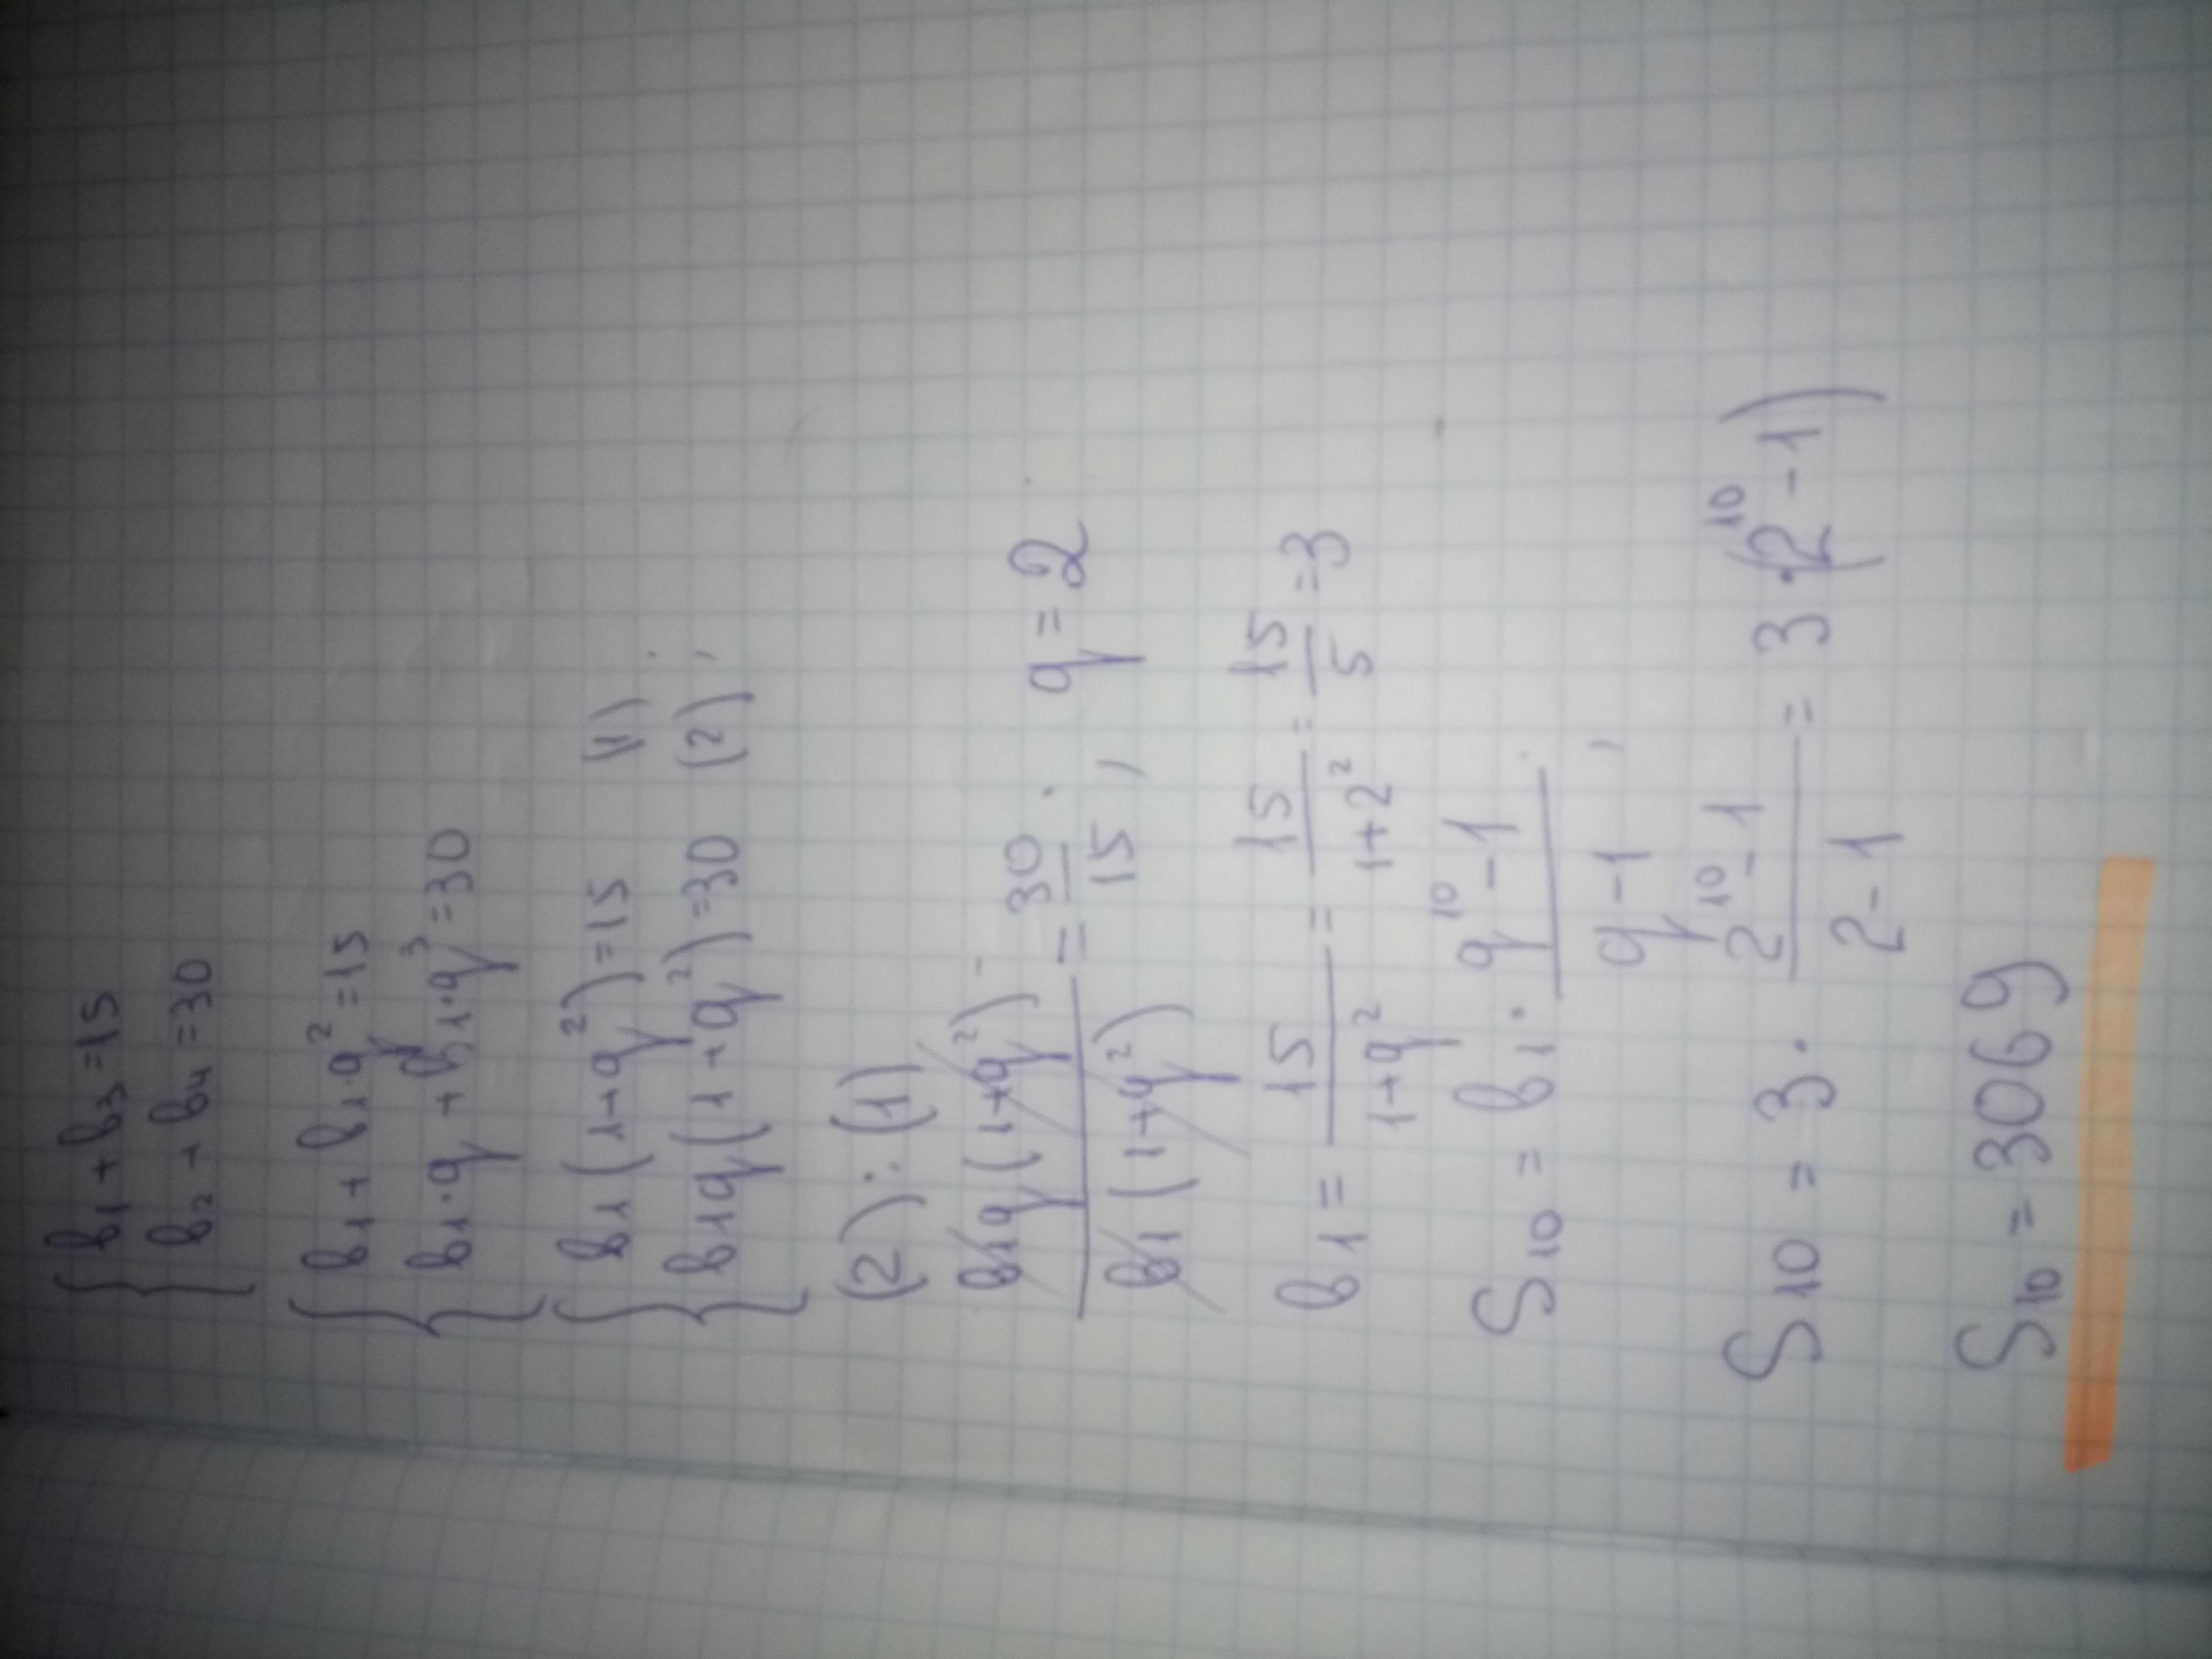 { b₁ + b₃ = 15
b₂ + b₄ = 30
{ b₁ + b₁·q² = 15
b₁·q + b₁·q³ = 30
{ b₁(1+q²) = 15 (1)
b₁q(1+q²) = 30 (2);
(2):(1)
b₁q(1+q²) / b₁(1+q²) = 30/15; q = 2
b₁ = 15/(1+q²) = 15/(1+2²) = 15/5 = 3
S₁₀ = b₁· (q¹⁰-1)/(q-1);
S₁₀ = 3· (2¹⁰-1)/(2-1) = 3·(2¹⁰-1)
S₁₀ = 3069